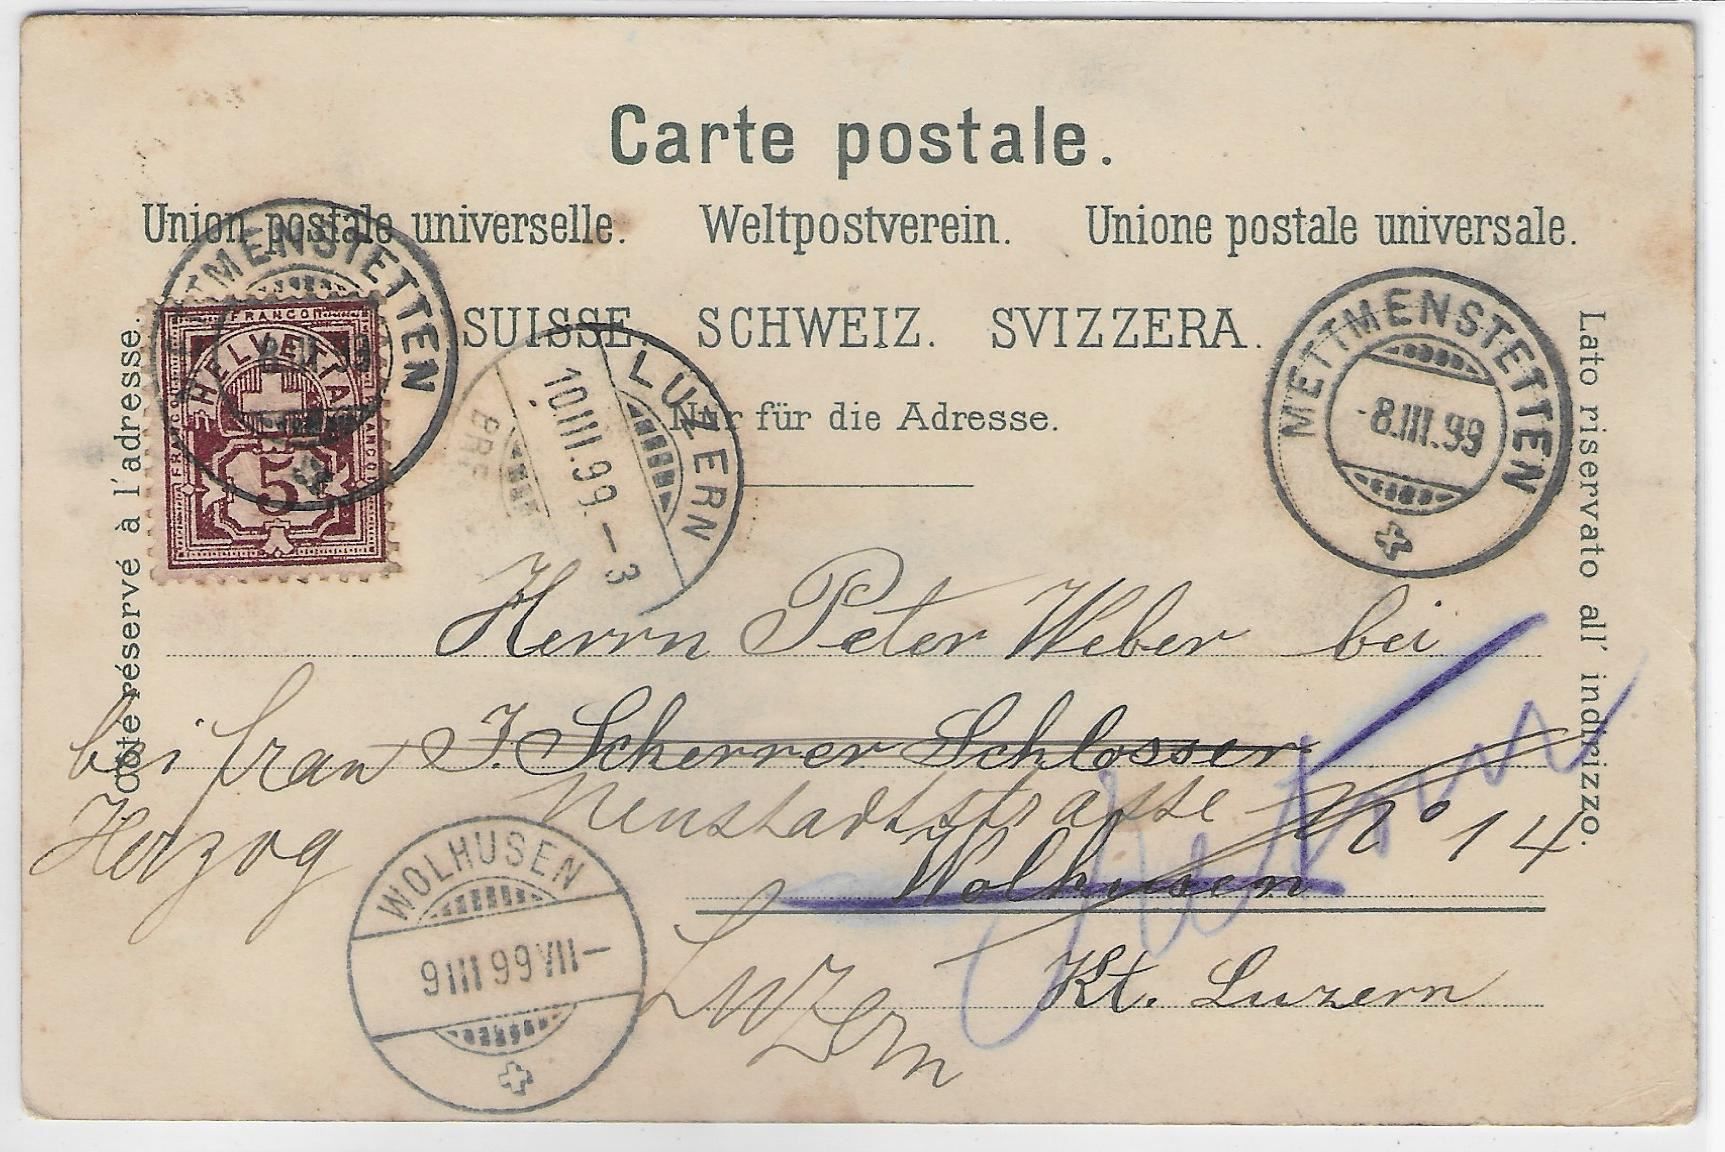 Carte postale.
Union postale universelle. Weltpostverein. Unione postale universale.
SUISSE. SCHWEIZ. SVIZZERA.
Nur für die Adresse.
Côté réservé à l'adresse.
Lato riservato all' indirizzo.
METTMENSTETTEN
FRANCO
FRANCO
FRANCO
HELVETIA
5
LUZERN
10.III.99.–3
BRF
METTMENSTETTEN
-8.III.99
Herrn Peter Weber bei
bei frau J. Scherrer Schlosser
Herzog Neustadtstrasse No 14
Wolhusen
Luzern
Kt. Luzern
Luzern
WOLHUSEN
9III99VII–